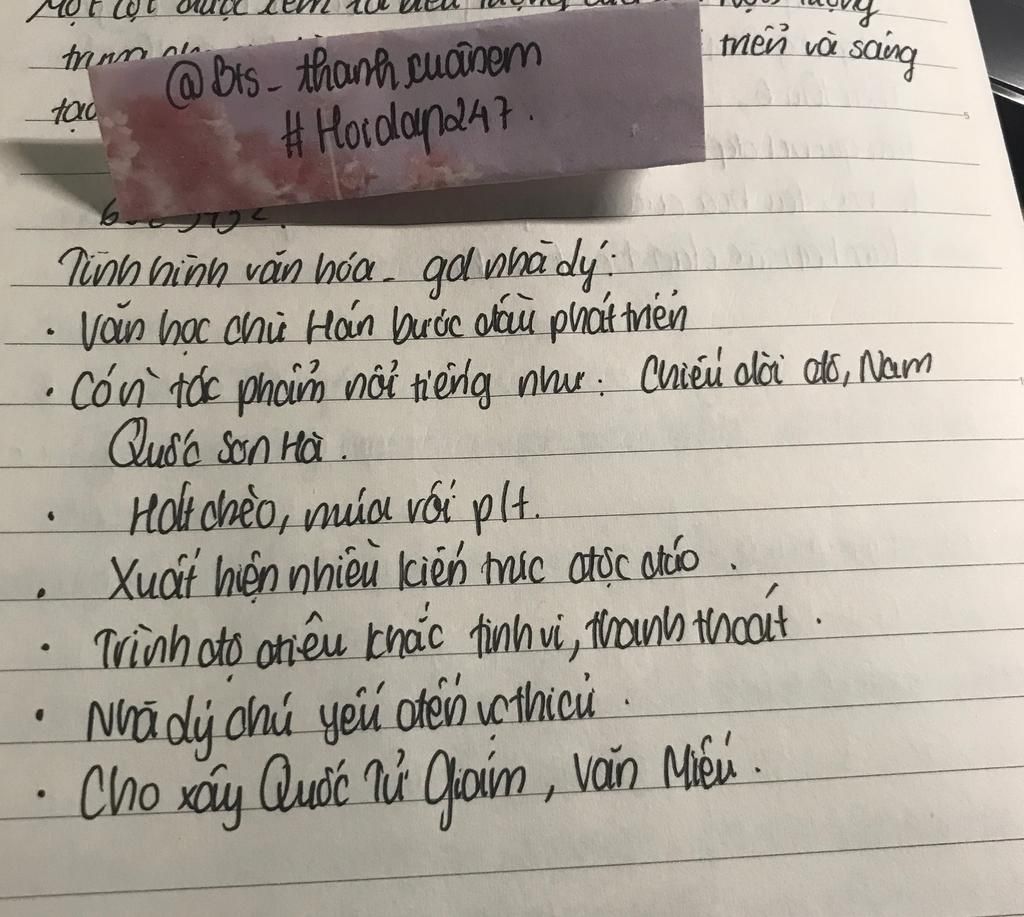 Một cột được xem là
mển và sáng
tạo
@Bts_thanhxuâncem
#Hoidap247.
Tình hình văn hóa - gd nhà dý:
• Văn học chữ Hán bước đầu phát triển
• Có nì tác phẩm nổi tiếng như: Chiếu dời đô, Nam
Quốc Sơn Hà.
• Hát chèo, múa rối plt.
• Xuất hiện nhiều kiến trúc độc đáo.
• Trình độ điêu khắc tinh vi, thanh thoát.
• Nhà dý chú yếu đến vc thi cử.
• Cho xây Quốc Tử Giám, Văn Miếu.